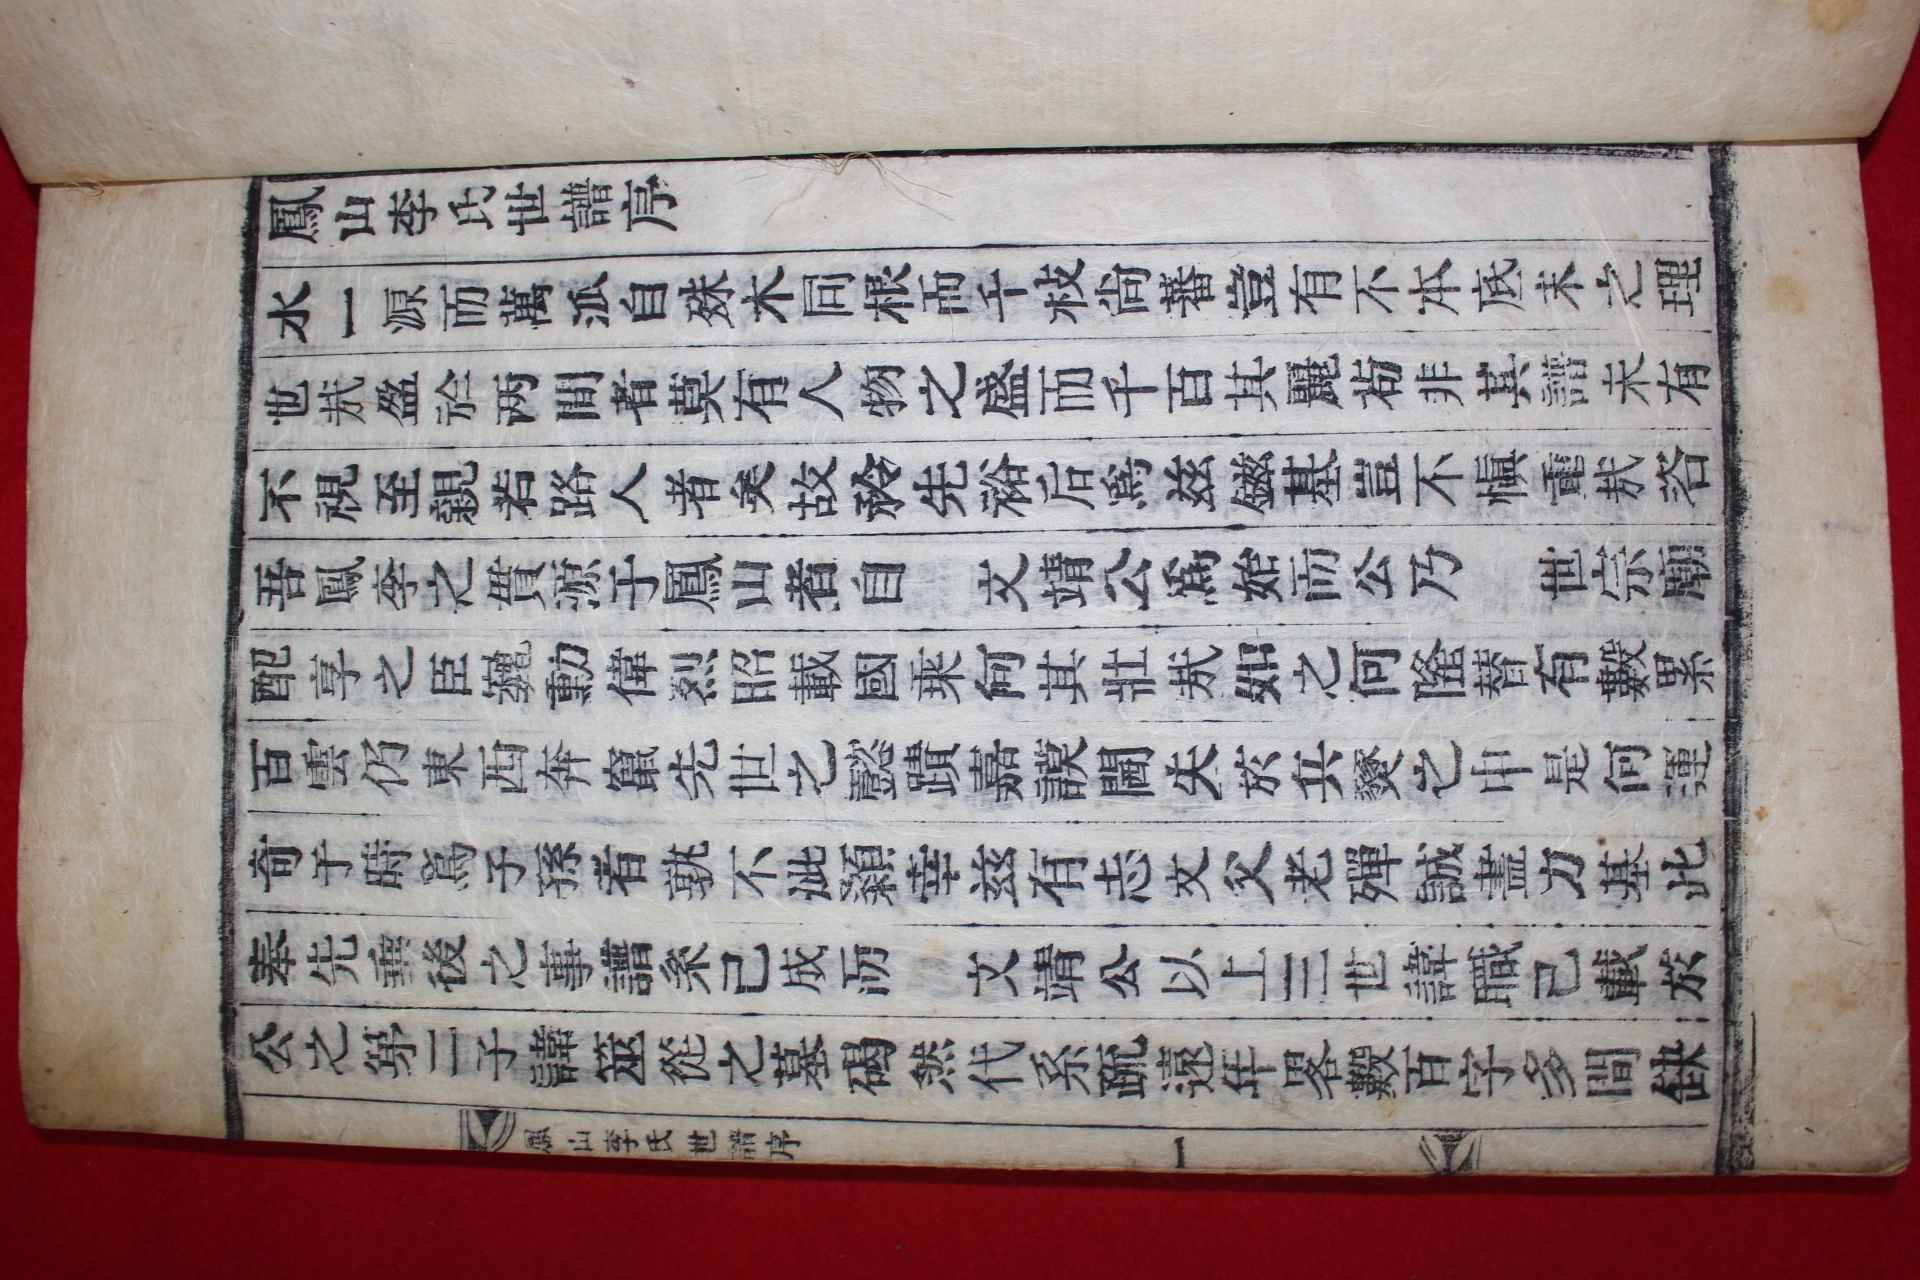 鳳山李氏世譜序
水一源而萬派自殊木同根而千枝尙蕃豈有不本底末之理
世哉盈於两間者莫有人物之盛而千百其麗苟非其譜未有
不視至親若路人者矣故於先裕后爲兹鎡基豈不愼重哉咨
吾鳳李之貫源于鳳山者自 文靖公爲始而公乃 世宗廟
配享之臣巍勳偉烈昭載國乗何其壯哉如之何隆替有數累
百雲仍東西奔竄先世之懿蹟嘉謨閪失於兵燹之中是何運
奇于時爲子孫者孰不泚顙幸兹有志父老殫誠盡力基此
奉先裕後之事譜系已成而 文靖公以上三世諱職已載於
公之第二子諱筮從之墓碣然代系䟽遠年畧數百字多間缺
鳳山李氏世譜序